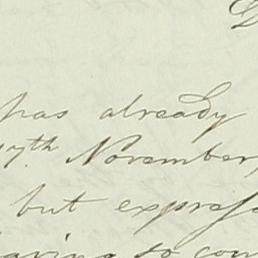 has already
7th November,
but express
having so com